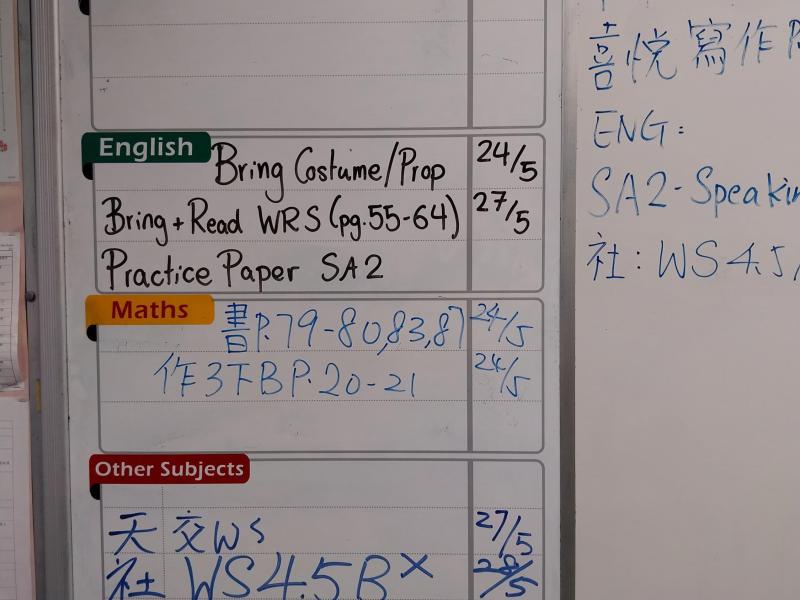 English
Bring Costume/Prop 24/5
Bring + Read WRS (pg.55-64) 27/5
Practice Paper SA2
Maths
書P.79-80,83,87 24/5
作3下B P.20-21 24/5
Other Subjects
天 交WS 27/5
社 WS4.5B× 28/5
喜悅寫作
ENG:
SA2-Speakin
社:WS4.5